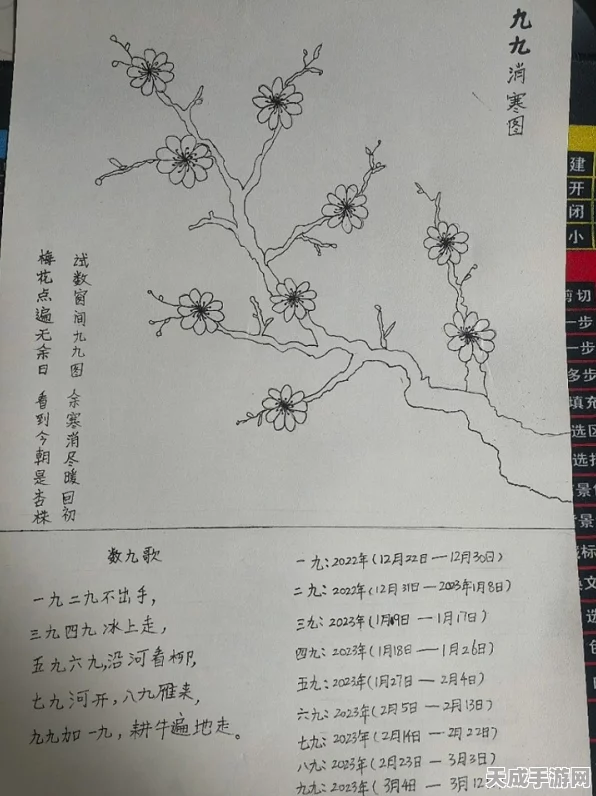 九九消寒图
试数窗间九九图 余寒消尽暖回初
梅花点遍无余日 看到今朝是杏株
数九歌
一九二九不出手，
三九四九冰上走，
五九六九，沿河看柳，
七九河开，八九雁来，
九九加一九，耕牛遍地走。
一九：2022年（12月22日—12月30日）
二九：2022年（12月31日—2023年1月8日）
三九：2023年（1月9日—1月17日）
四九：2023年（1月18日—1月26日）
五九：2023年（1月27日—2月4日）
六九：2023年（2月5日—2月13日）
七九：2023年（2月14日—2月22日）
八九：2023年（2月23日—3月3日）
九九：2023年（3月4日—3月12
建
开
闭
小
剪切
一步
一步
多步
填充
选区
天成手游网